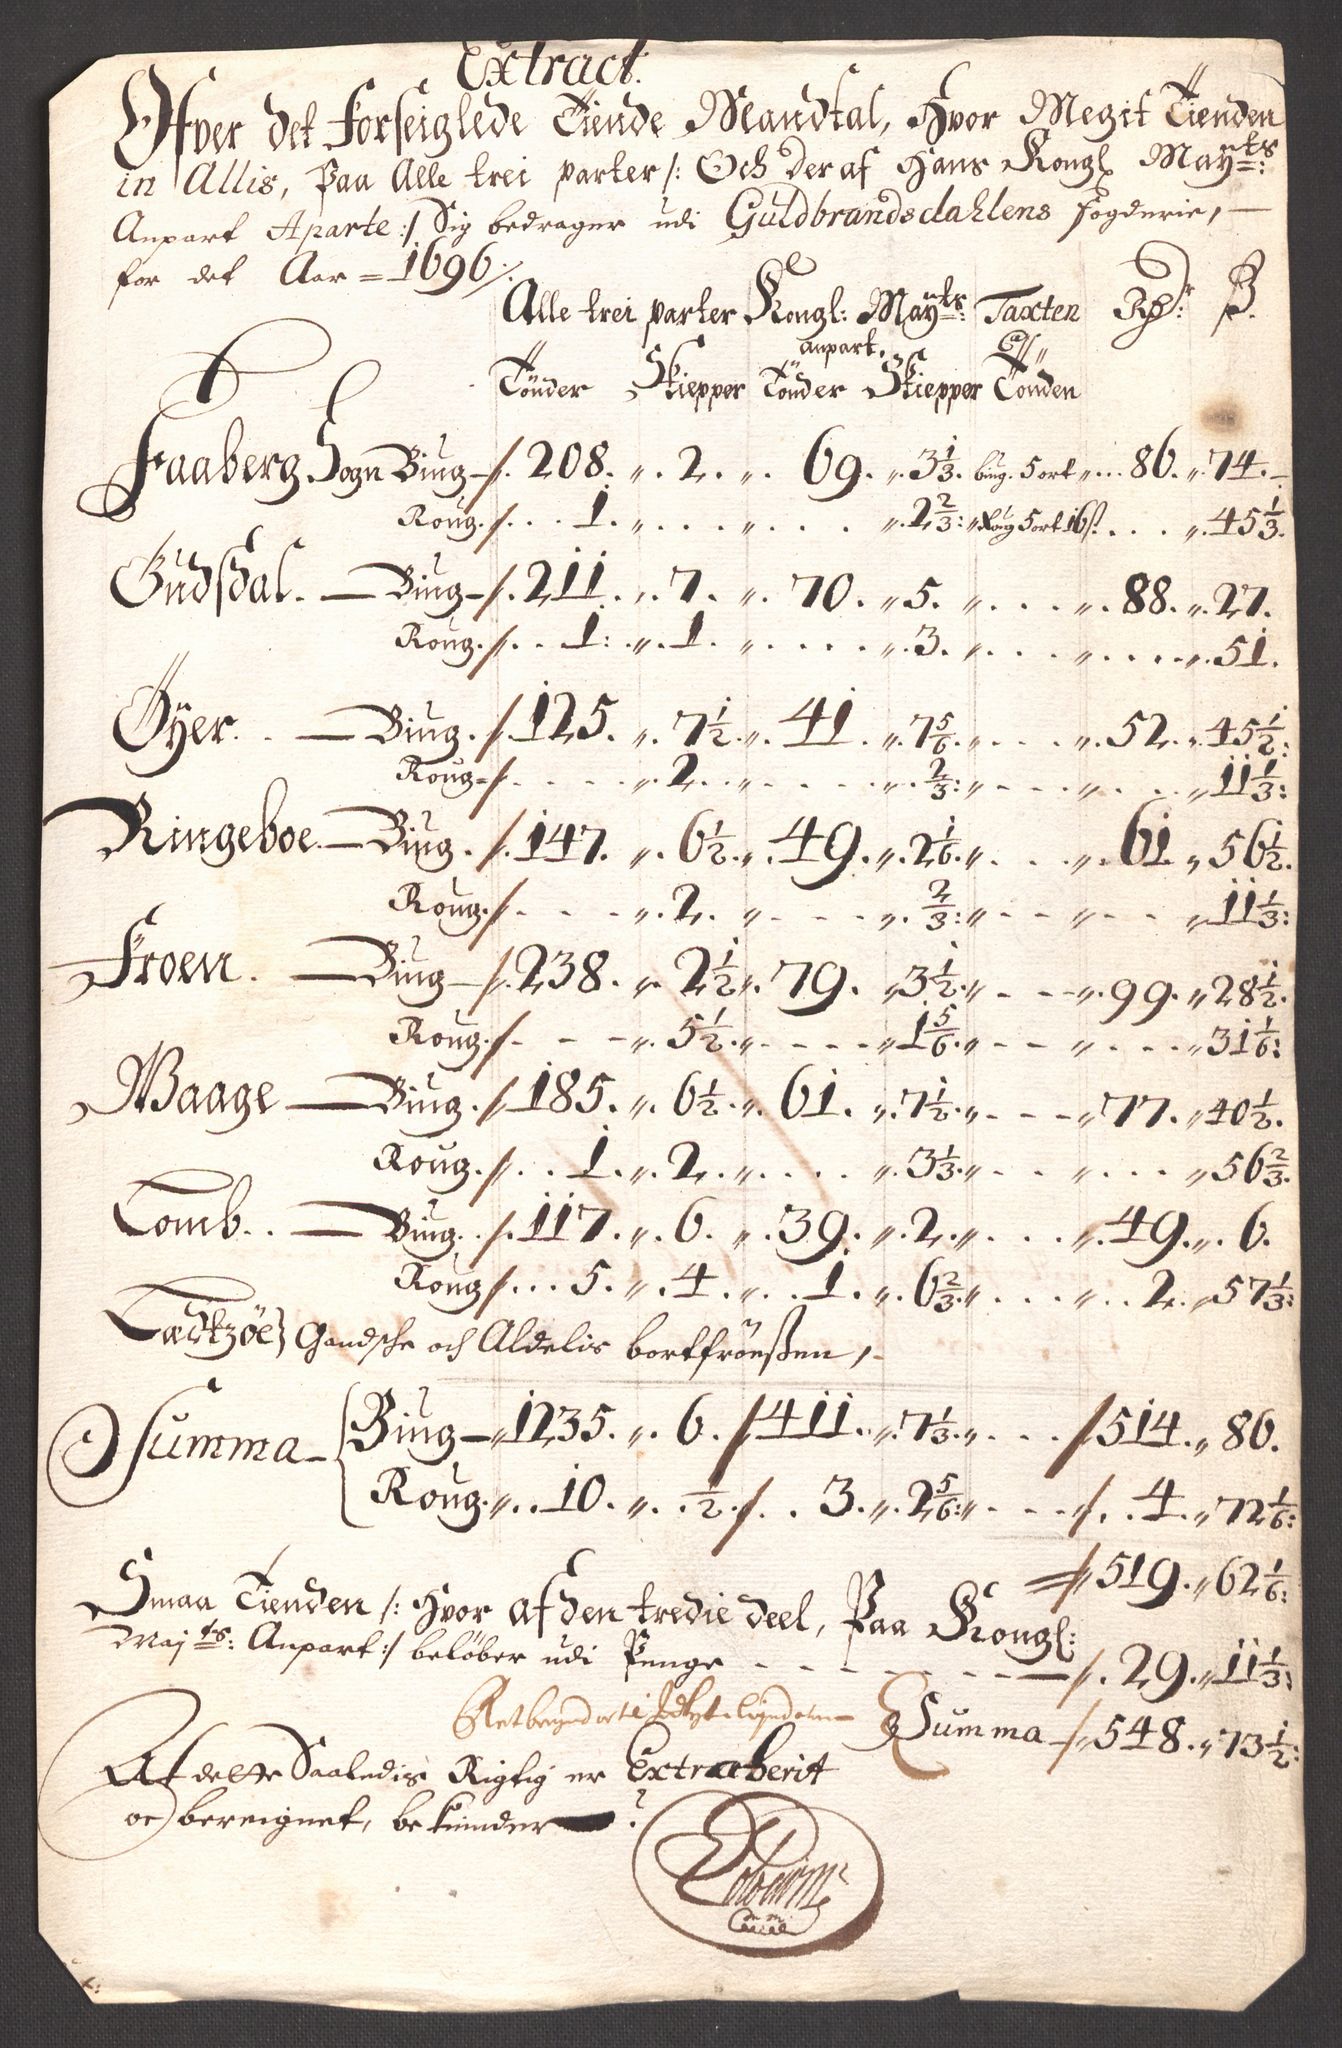 Extract.
Ofver det forseiglede Tiende Mandtal, Hvor Megit Tienden
in Allis, Paa Alle trei parter /: Och der af Hans Kongl Mayts:
Anpart Aparte :/ Sig bedrager udi Guldbrandsdahlens fogderie,
for det Aar = 1696 /.
Alle trei parter Kongl: Mayts: Taxten Rdr: ß.
anpart.
Tönder Skiepper Tönder Skiepper Tönden
Faaberg Sogn Biug 208. 2. 69. 3 1/3. biug. 5 ort 86. 74.
Roug. 1. 2 2/3: Roug 5 ort 16 ß. 45 1/3.
Gudsdal. Biug 211. 7. 70. 5. 88. 27.
Roug. 1: 1. 3. 51.
Öyer. Biug. 125. 7 1/2. 41 7 5/6. 52. 45 1/2:
Roug 2. 2/3: 11 1/3:
Ringeboe. Biug. 147. 6 1/2. 49. 2 1/6. 61 56 1/2.
Roug. 2. 2/3: 11 1/3:
Froen. Biug 238. 2 1/2. 79. 3 1/2. 99. 28 1/2.
Roug. 5 1/2. 1 5/6. 31 1/6:
Waage Biug. 185. 6 1/2. 61. 7 1/2. 77. 40 1/2.
Roug. 1. 2. 3 1/3. 56 2/3.
Lomb. Biug. 117. 6. 39. 2. 49. 6.
Roug 5. 4 1 6 2/3. 2. 57 1/3:
Gandsche och Aldelis bortfröeßen,
Summa Biug 1235. 6. 411. 7 1/3. 514. 86.
Roug. 10. 1/2. 3. 2 5/6: 4. 72 1/6:
519. 62 1/6:
Smaa Tienden /: Hvor af den tredie deel, Paa Kongl:
Majts: Anpart :/ belöber udi Penge 29. 11 1/3:
Summa 548. 73 1/2:
At dette Saaledis Rigtig er Extracherit
oc bereignet, bekiender